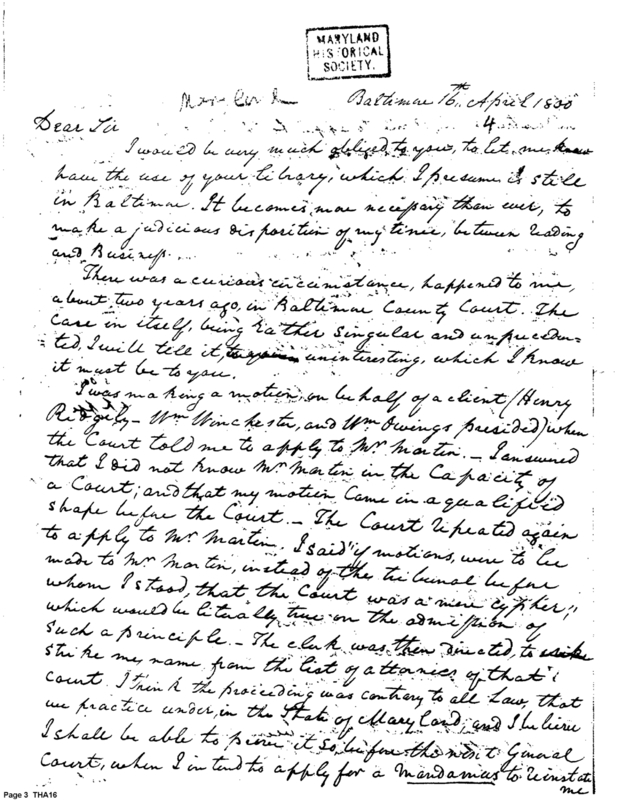 MARYLAND
HISTORICAL
SOCIETY.
Maryland
Baltimore 16th April 1800
4
Dear Sir
I would be very much obliged to you, to let me know
have the use of your Library, which I presume is still
in Baltimore. It becomes more necessary than ever, to
make a judicious disposition of my time, between reading
and Business.
There was a curious circumstance, happened to me,
about two years ago, in Baltimore County Court. The
Case in itself, being rather Singular and unpreceden-
-ted, I will tell it, uninteresting, which I know
it must be to you.
I was making a motion, on behalf of a client (Henry
Ridgely - Wm Winchester, and Wm Owings presided) when
the Court told me to apply to Mr Martin. - I answered
that I did not know Mr Martin in the Capacity of
a Court; and that my motion Came in a qualified
shape before the Court. - The Court repeated again
to apply to Mr Martin. I said "if motions, were to be
made to Mr Martin, instead of the tribunal before
whom I stood, that the Court was a mere cypher;"
which would be literally true on the admission of
such a principle. - The clerk was then directed, to strike
strike my name from the list of attornies of that
Court. I think the proceeding was contrary to all Law, that
we practice under, in the State of Maryland, and I believe
I shall be able to prove it so, before the next General
Court, when I intend to apply for a Mandamus to reinstate
me
Page 3 THA16